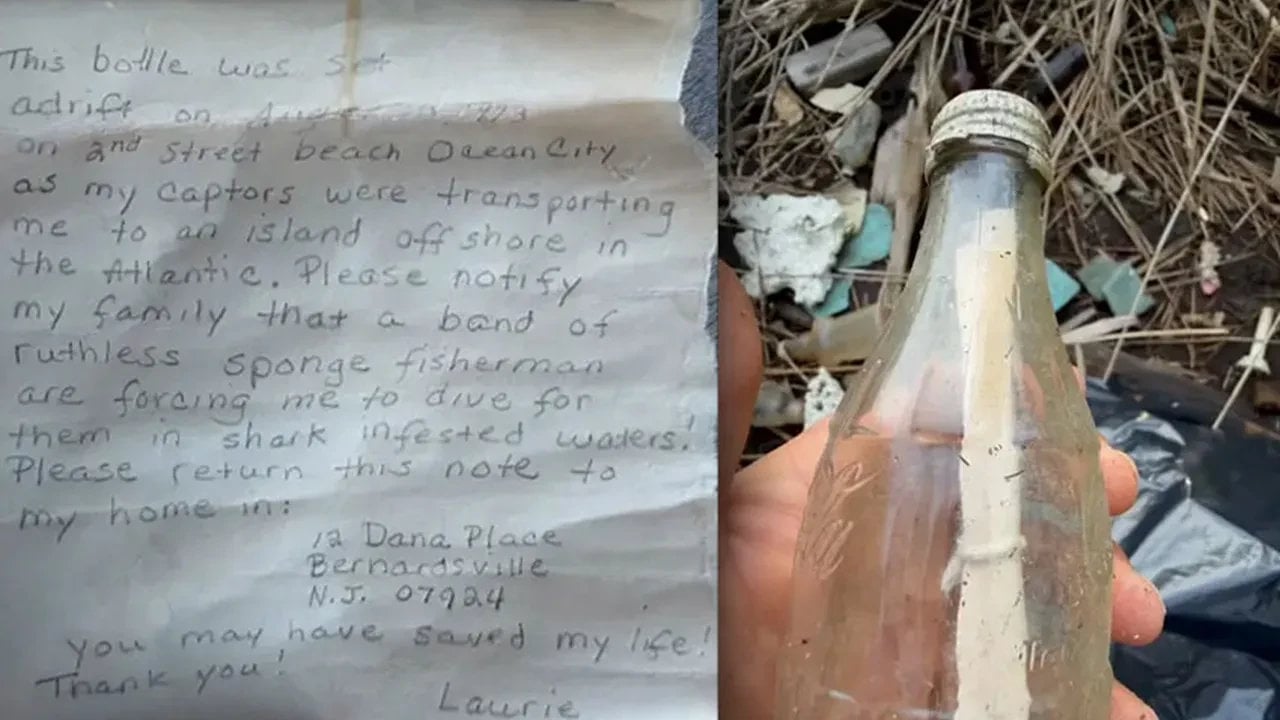 This bottle was set
adrift on
on 2nd street beach Ocean City
as my captors were transporting
me to an island off shore in
the Atlantic. Please notify
my family that a band of
ruthless sponge fisherman
are forcing me to dive for
them in shark infested waters!
Please return this note to
my home in:
12 Dana Place
Bernardsville
N.J. 07924
you may have saved my life!
Thank you!
Laurie